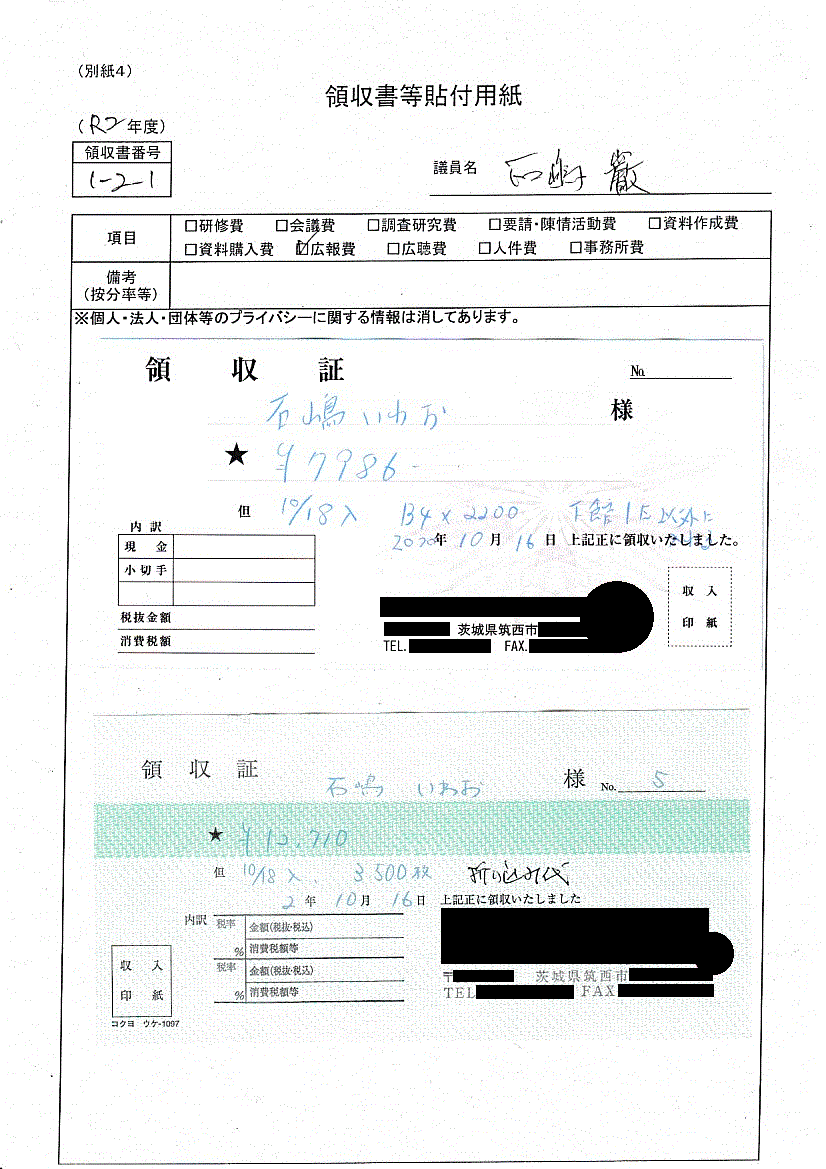 （別紙４）
領収書等貼付用紙
（R2年度）
領収書番号
1-2-1
議員名 石嶋 巌
項目
□研修費 □会議費 □調査研究費 □要請・陳情活動費 □資料作成費
□資料購入費 ☑広報費 □広聴費 □人件費 □事務所費
備考
（按分率等）
※個人・法人・団体等のプライバシーに関する情報は消してあります。
領 収 証
№
石嶋 いわお 様
★ ¥7986-
但 10/18入 B4×2200 下館1区以外に
内訳
2020年 10月 16日 上記正に領収いたしました。
現 金
小切手
税抜金額
消費税額
収 入
印 紙
茨城県筑西市
TEL. FAX.
領 収 証
石嶋 いわお 様 No. 5
★ ¥12,710
但 10/18入、 3500枚 折り込み代
2年 10月 16日 上記正に領収いたしました
内訳
税率 金額(税抜・税込)
% 消費税額等
税率 金額(税抜・税込)
% 消費税額等
収 入
印 紙
コクヨ ウケ-1097
〒 茨城県筑西市
TEL FAX